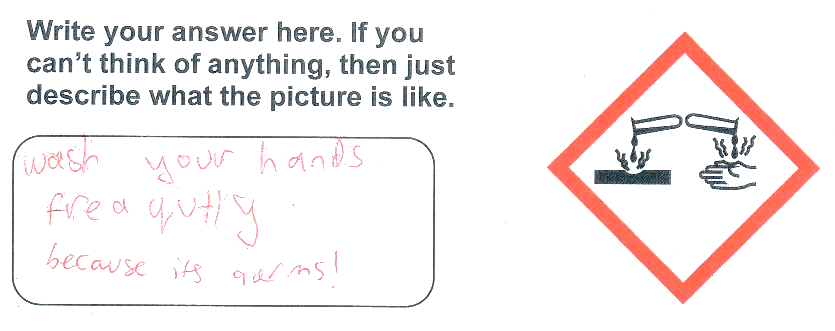 Write your answer here. If you
can't think of anything, then just
describe what the picture is like.
wash your hands
freaqutly
because its germs!